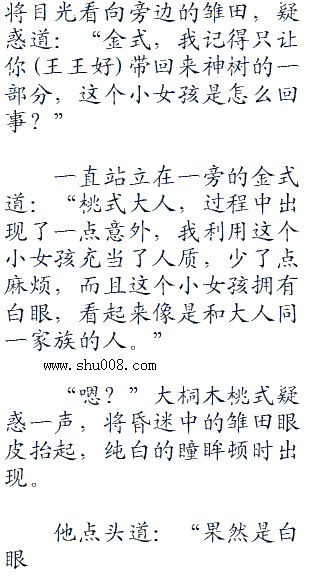 将目光看向旁边的雏田，疑
惑道：“金式，我记得只让
你(王王好)带回来神树的一
部分，这个小女孩是怎么回
事？”
一直站立在一旁的金式
道：“桃式大人，过程中出
现了一点意外，我利用这个
小女孩充当了人质，少了点
麻烦，而且这个小女孩拥有
白眼，看起来像是和大人同
一家族的人。”
www.shu008.com
“嗯？”大桐木桃式疑
惑一声，将昏迷中的雏田眼
皮抬起，纯白的瞳眸顿时出
现。
他点头道：“果然是白
眼